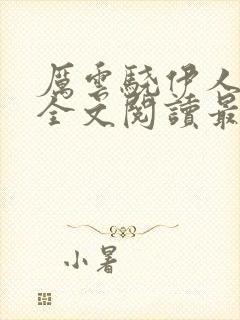 厲雲驍伊人
全文閱讀最
小暑